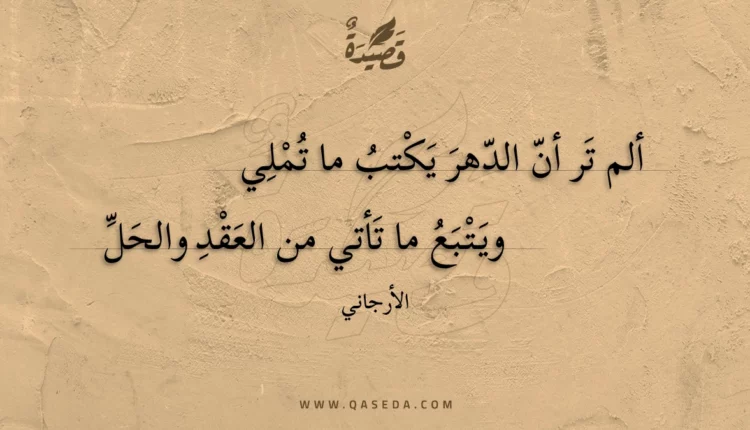 قَصِيْدَةٌ
ألم تَر أنّ الدّهرَ يَكْتبُ ما تُمْلِي
ويَتْبَعُ ما تَأتي من العَقْدِ والحَلِّ
الأرجاني
WWW.QASEDA.COM